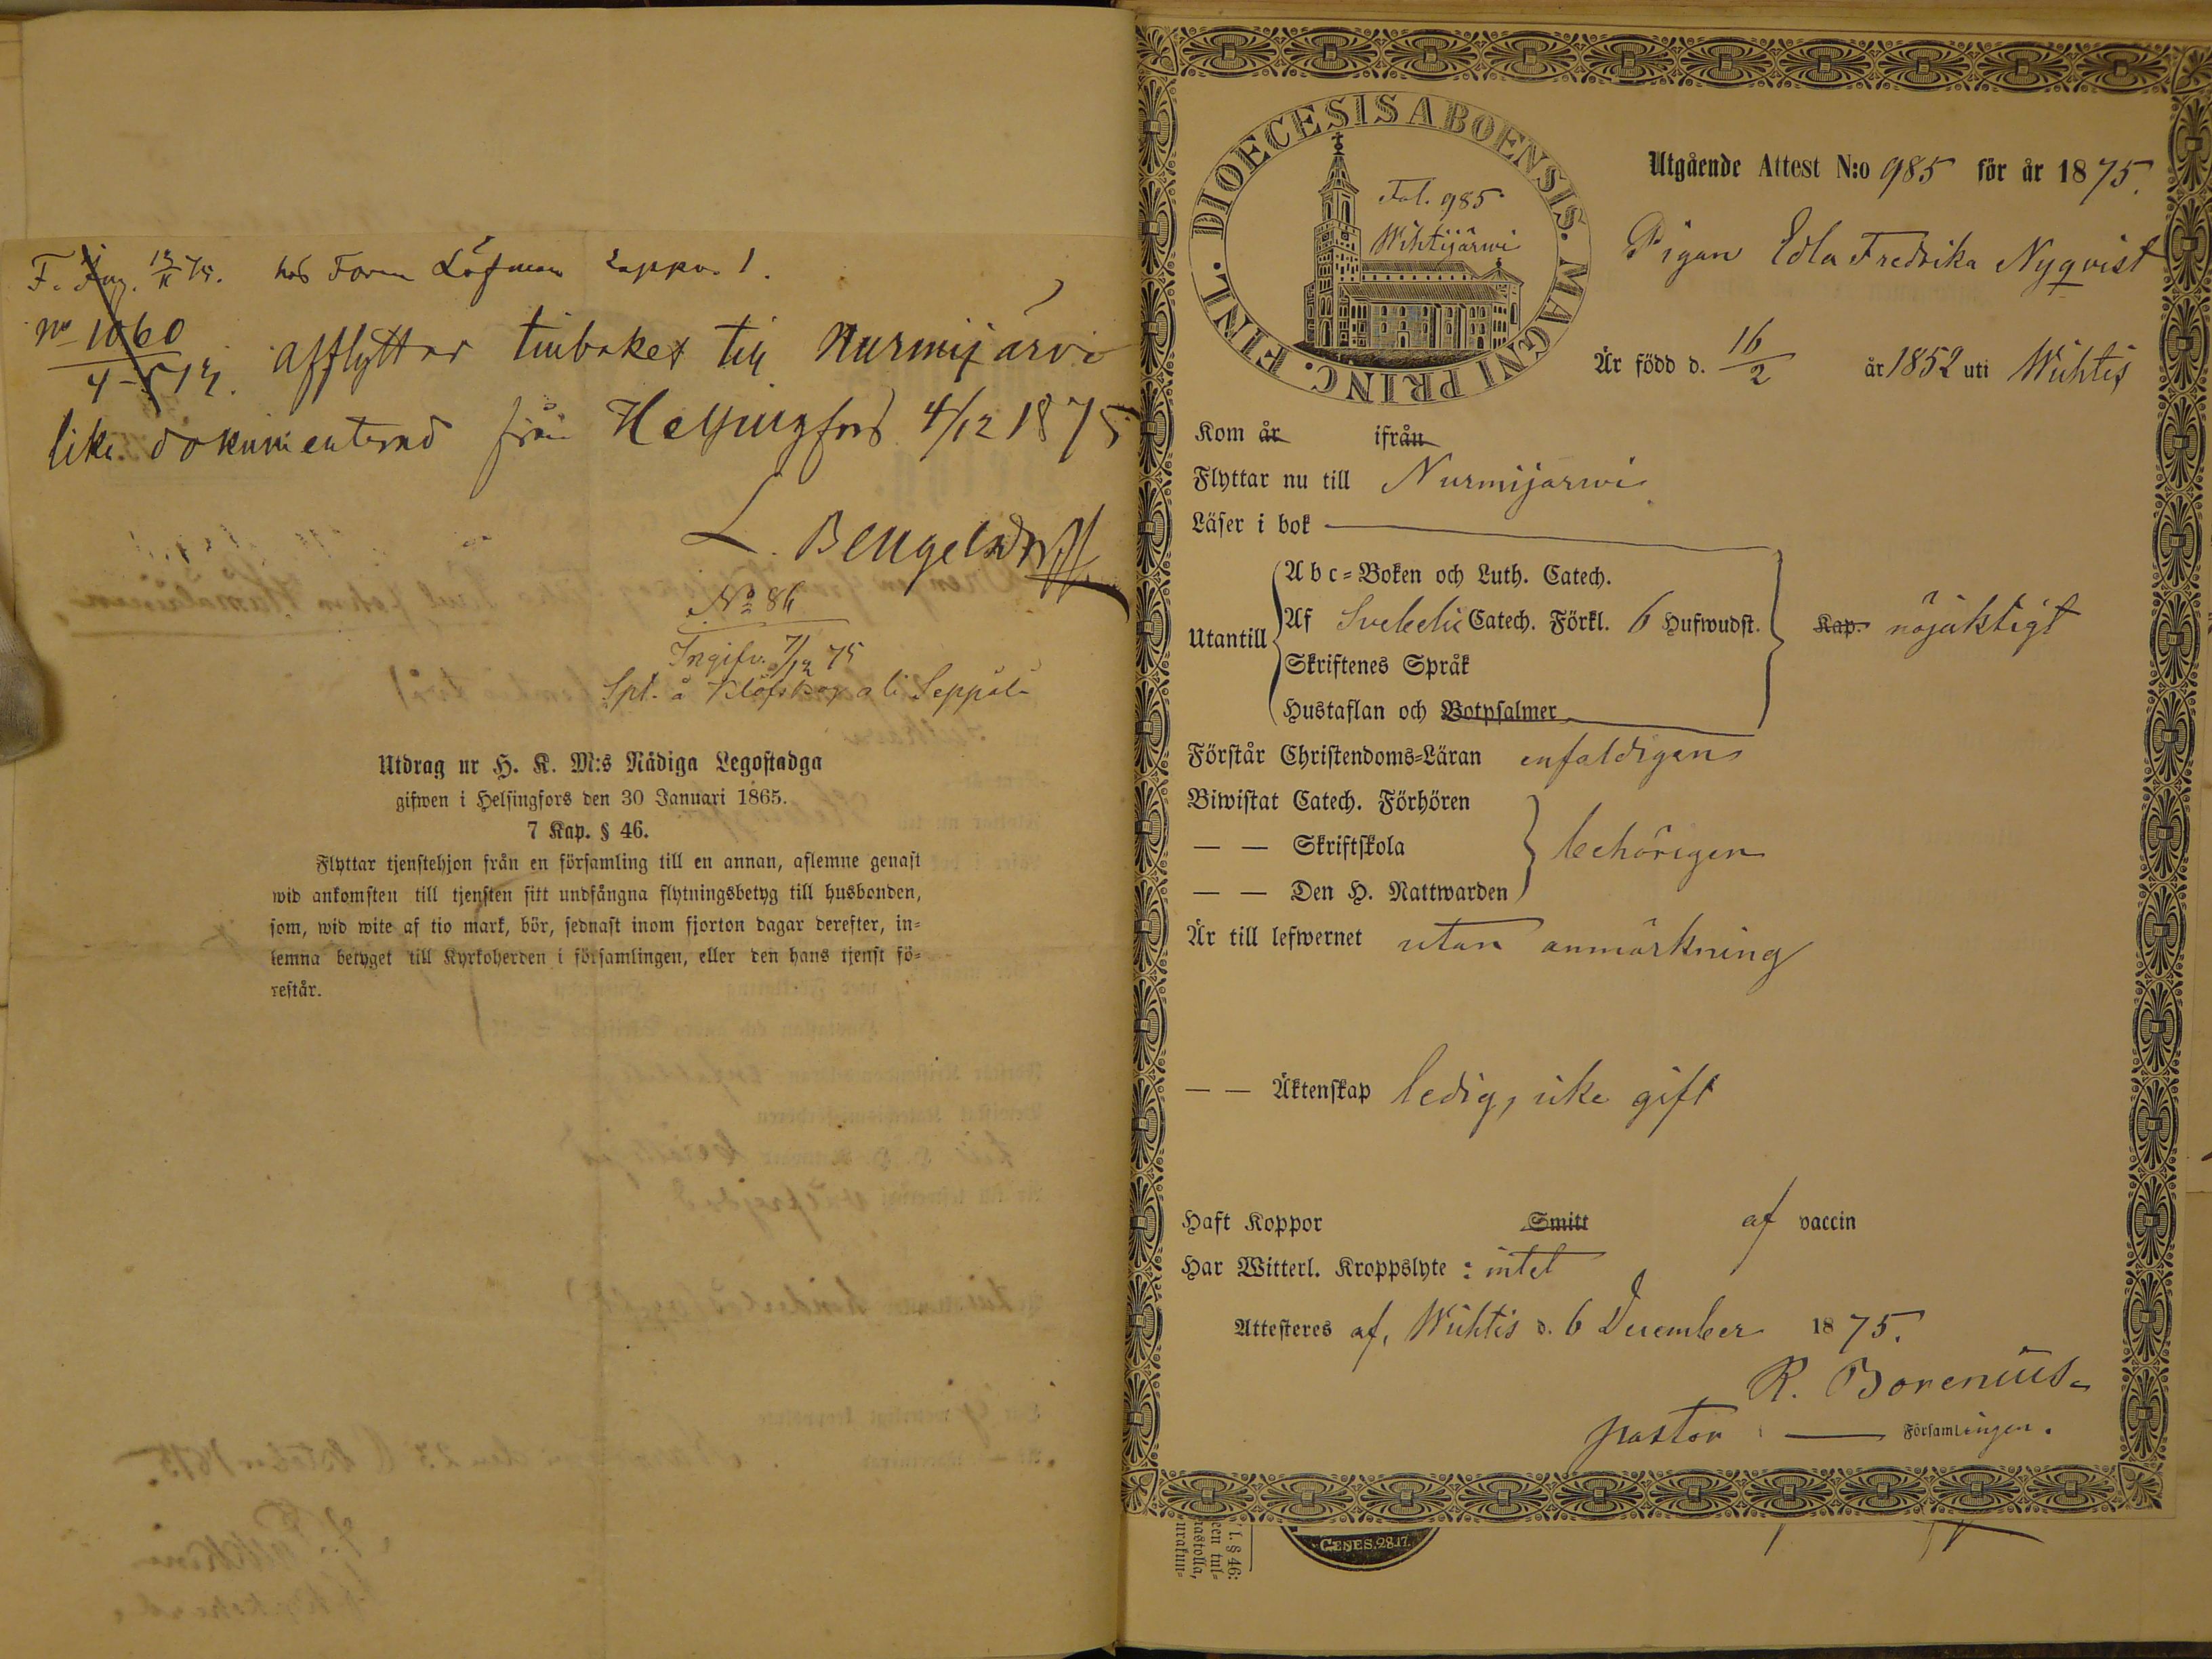 F. Ing. 12/11 75. hos Form Löfman Lappv. 1.
No 1060 afflyttar tillbaket till Nurmijärvi
4-5 14.
lika dokumenterad från Helsingfors 4/12 1875
L. Bengelsdorff
No 86
Ingifv. 7/12 75
Spl. å Klöfskog ali Seppälä
Utdrag ur H. K. M:s Nådiga Legostadga
gifwen i Helsingfors den 30 Januari 1865.
7 Kap. § 46.
Flyttar tjenstehjon från en församling till en annan, aflemne genast
wid ankomsten till tjensten sitt undfångna flytningsbetyg till husbonden,
som, wid wite af tio mark, bör, sednast inom fjorton dagar derefter, in=
lemna betyget till Kyrkoherden i församlingen, eller den hans tjenst fö=
restår.
DIOECESIS ABOENSIS. MAGNI PRINC. FINL.
Fol. 985
Wihtijärwi
Utgående Attest N:o 985 för år 1875.
Pigan Edla Fredrika Nyqvist
Är född d. 16/2 år 1852 uti Wichtis
Kom år ifrån
Flyttar nu till Nurmijärwi
Läser i bok
Utantill
Abc=Boken och Luth. Catech.
Af Svebelii Catech. Förkl. 6 Hufwudst.
Skriftenes Språk
Hustaflan och Botpsalmer
Kap. nöjaktigt
Förstår Christendoms=Läran enfaldigen
Biwistat Catech. Förhören
— — Skriftskola behörigen
— — Den H. Nattwarden
Är till lefwernet utan anmärkning
— — Äktenskap ledig, icke gift
Haft Koppor Smitt af vaccin
Har Witterl. Kroppslyte : intet
Attesteres af, Wichtis d. 6 December 1875.
R. Borenius
pastor i — Församlingen.
l. § 46:
GENES. 28.17.